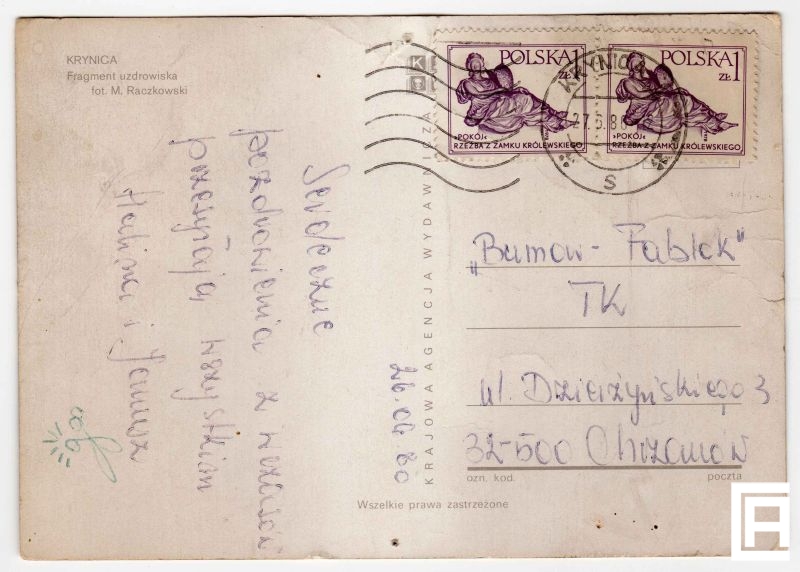 KRYNICA
Fragment uzdrowiska
fot. M. Raczkowski
Serdeczne
pozdrowienia z wczasów
przesyłają wszystkim
Halina i Janusz
26.06.80
KRAJOWA AGENCJA WYDAWNICZA
K
POLSKA 1 ZŁ
»POKÓJ«
RZEŹBA Z ZAMKU KRÓLEWSKIEGO
POLSKA 1 ZŁ
»POKÓJ«
RZEŹBA Z ZAMKU KRÓLEWSKIEGO
KRYNICA
27.6.8
S
„Bumow-Fablok"
TK
ul. Dzierżyńskiego 3
32-500 Chrzanów
ozn. kod. poczta
Wszelkie prawa zastrzeżone